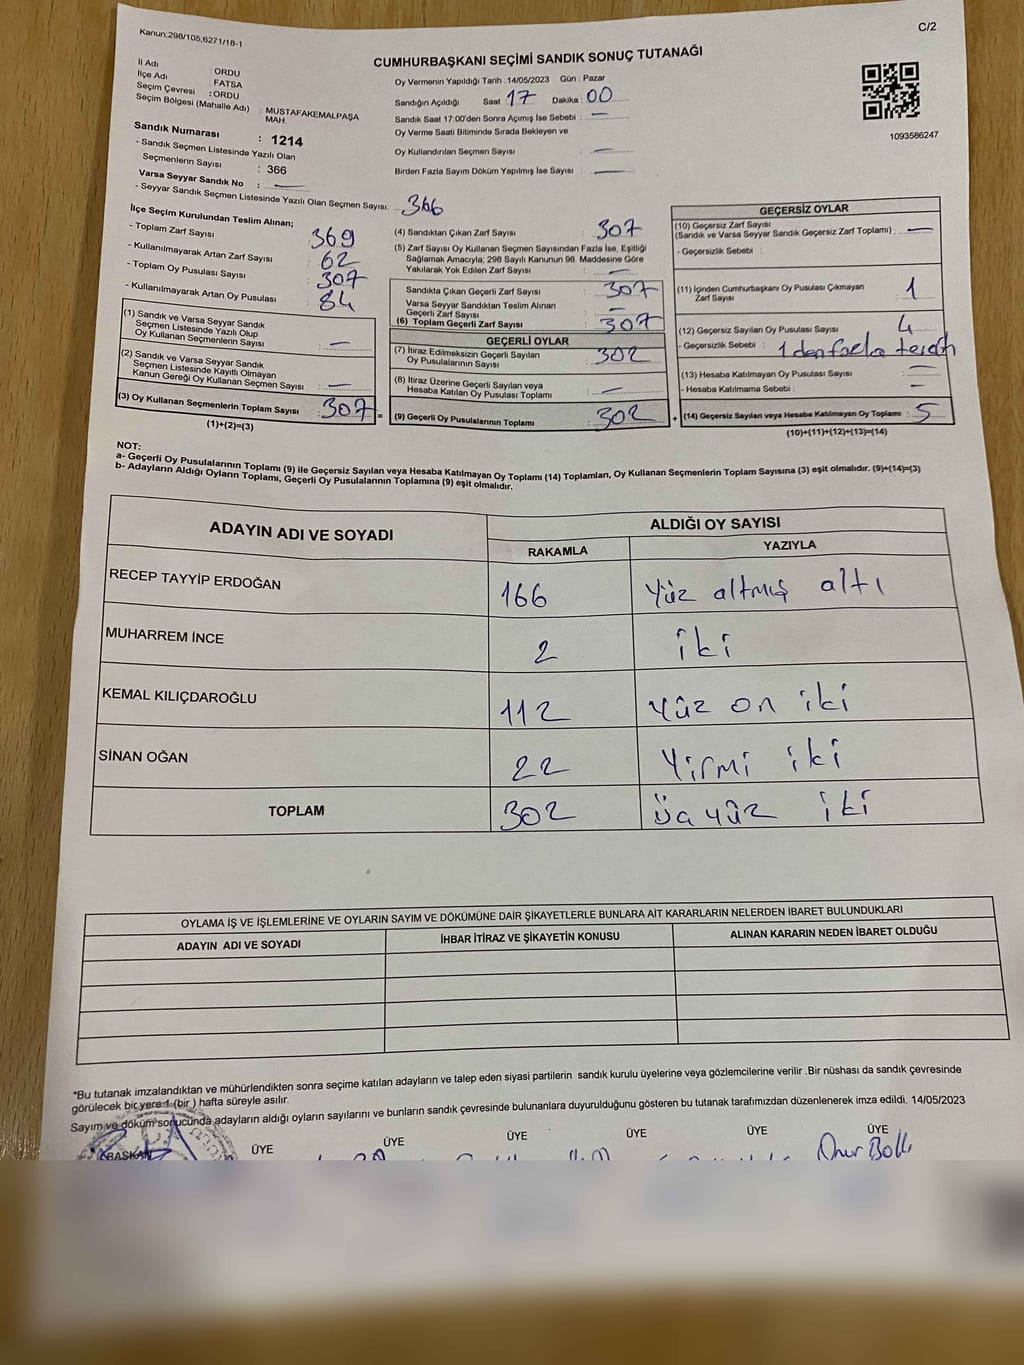 Kanun;298/105,6271/18-1
C/2
CUMHURBAŞKANI SEÇİMİ SANDIK SONUÇ TUTANAĞI
İl Adı : ORDU
İlçe Adı : FATSA
Seçim Çevresi : ORDU
Seçim Bölgesi (Mahalle Adı) : MUSTAFAKEMALPAŞA MAH.
Sandık Numarası : 1214
- Sandık Seçmen Listesinde Yazılı Olan
Seçmenlerin Sayısı : 366
Varsa Seyyar Sandık No : —
- Seyyar Sandık Seçmen Listesinde Yazılı Olan Seçmen Sayısı: 366
Oy Vermenin Yapıldığı Tarih : 14/05/2023 Gün : Pazar
Sandığın Açıldığı Saat : 17 Dakika : 00
Sandık Saat 17:00'den Sonra Açımış İse Sebebi : —
Oy Verme Saati Bitiminde Sırada Bekleyen ve
Oy Kullandırılan Seçmen Sayısı : —
Birden Fazla Sayım Döküm Yapılmış İse Sayısı : —
1093586247
İlçe Seçim Kurulundan Teslim Alınan;
- Toplam Zarf Sayısı : 369
- Kullanılmayarak Artan Zarf Sayısı : 62
- Toplam Oy Pusulası Sayısı : 307
- Kullanılmayarak Artan Oy Pusulası : 84
(1) Sandık ve Varsa Seyyar Sandık
Seçmen Listesinde Yazılı Olup
Oy Kullanan Seçmenlerin Sayısı : —
(2) Sandık ve Varsa Seyyar Sandık
Seçmen Listesinde Kayıtlı Olmayan
Kanun Gereği Oy Kullanan Seçmen Sayısı : —
(3) Oy Kullanan Seçmenlerin Toplam Sayısı : 307 =
(1)+(2)=(3)
(4) Sandıktan Çıkan Zarf Sayısı : 307
(5) Zarf Sayısı Oy Kullanan Seçmen Sayısından Fazla İse, Eşitliği
Sağlamak Amacıyla; 298 Sayılı Kanunun 98. Maddesine Göre
Yakılarak Yok Edilen Zarf Sayısı : —
Sandıkta Çıkan Geçerli Zarf Sayısı : 307
Varsa Seyyar Sandıktan Teslim Alınan
Geçerli Zarf Sayısı : —
(6) Toplam Geçerli Zarf Sayısı : 307
GEÇERLİ OYLAR
(7) İtiraz Edilmeksizin Geçerli Sayılan
Oy Pusulalarının Sayısı : 302
(8) İtiraz Üzerine Geçerli Sayılan veya
Hesaba Katılan Oy Pusulası Toplamı : —
(9) Geçerli Oy Pusulalarının Toplamı : 302 +
GEÇERSİZ OYLAR
(10) Geçersiz Zarf Sayısı
(Sandık ve Varsa Seyyar Sandık Geçersiz Zarf Toplamı) : —
- Geçersizlik Sebebi :
(11) İçinden Cumhurbaşkanı Oy Pusulası Çıkmayan
Zarf Sayısı : 1
(12) Geçersiz Sayılan Oy Pusulası Sayısı : 4
- Geçersizlik Sebebi : 1 den fazla tercih
(13) Hesaba Katılmayan Oy Pusulası Sayısı : —
- Hesaba Katılmama Sebebi : —
(14) Geçersiz Sayılan veya Hesaba Katılmayan Oy Toplamı : 5
(10)+(11)+(12)+(13)=(14)
NOT:
a- Geçerli Oy Pusulalarının Toplamı (9) ile Geçersiz Sayılan veya Hesaba Katılmayan Oy Toplamı (14) Toplamları, Oy Kullanan Seçmenlerin Toplam Sayısına (3) eşit olmalıdır. (9)+(14)=(3)
b- Adayların Aldığı Oyların Toplamı, Geçerli Oy Pusulalarının Toplamına (9) eşit olmalıdır.
ADAYIN ADI VE SOYADI
ALDIĞI OY SAYISI
RAKAMLA YAZIYLA
RECEP TAYYİP ERDOĞAN 166 Yüz altmış altı
MUHARREM İNCE 2 iki
KEMAL KILIÇDAROĞLU 112 Yüz on iki
SİNAN OĞAN 22 Yirmi iki
TOPLAM 302 üç yüz iki
OYLAMA İŞ VE İŞLEMLERİNE VE OYLARIN SAYIM VE DÖKÜMÜNE DAİR ŞİKAYETLERLE BUNLARA AİT KARARLARIN NELERDEN İBARET BULUNDUKLARI
ADAYIN ADI VE SOYADI İHBAR İTİRAZ VE ŞİKAYETİN KONUSU ALINAN KARARIN NEDEN İBARET OLDUĞU
*Bu tutanak imzalandıktan ve mühürlendikten sonra seçime katılan adayların ve talep eden siyasi partilerin sandık kurulu üyelerine veya gözlemcilerine verilir .Bir nüshası da sandık çevresinde
görülecek bir yere 1 (bir ) hafta süreyle asılır.
Sayım ve döküm sonucunda adayların aldığı oyların sayılarını ve bunların sandık çevresinde bulunanlara duyurulduğunu gösteren bu tutanak tarafımızdan düzenlenerek imza edildi. 14/05/2023
BAŞKAN ÜYE ÜYE ÜYE ÜYE ÜYE ÜYE
Onur Ballı